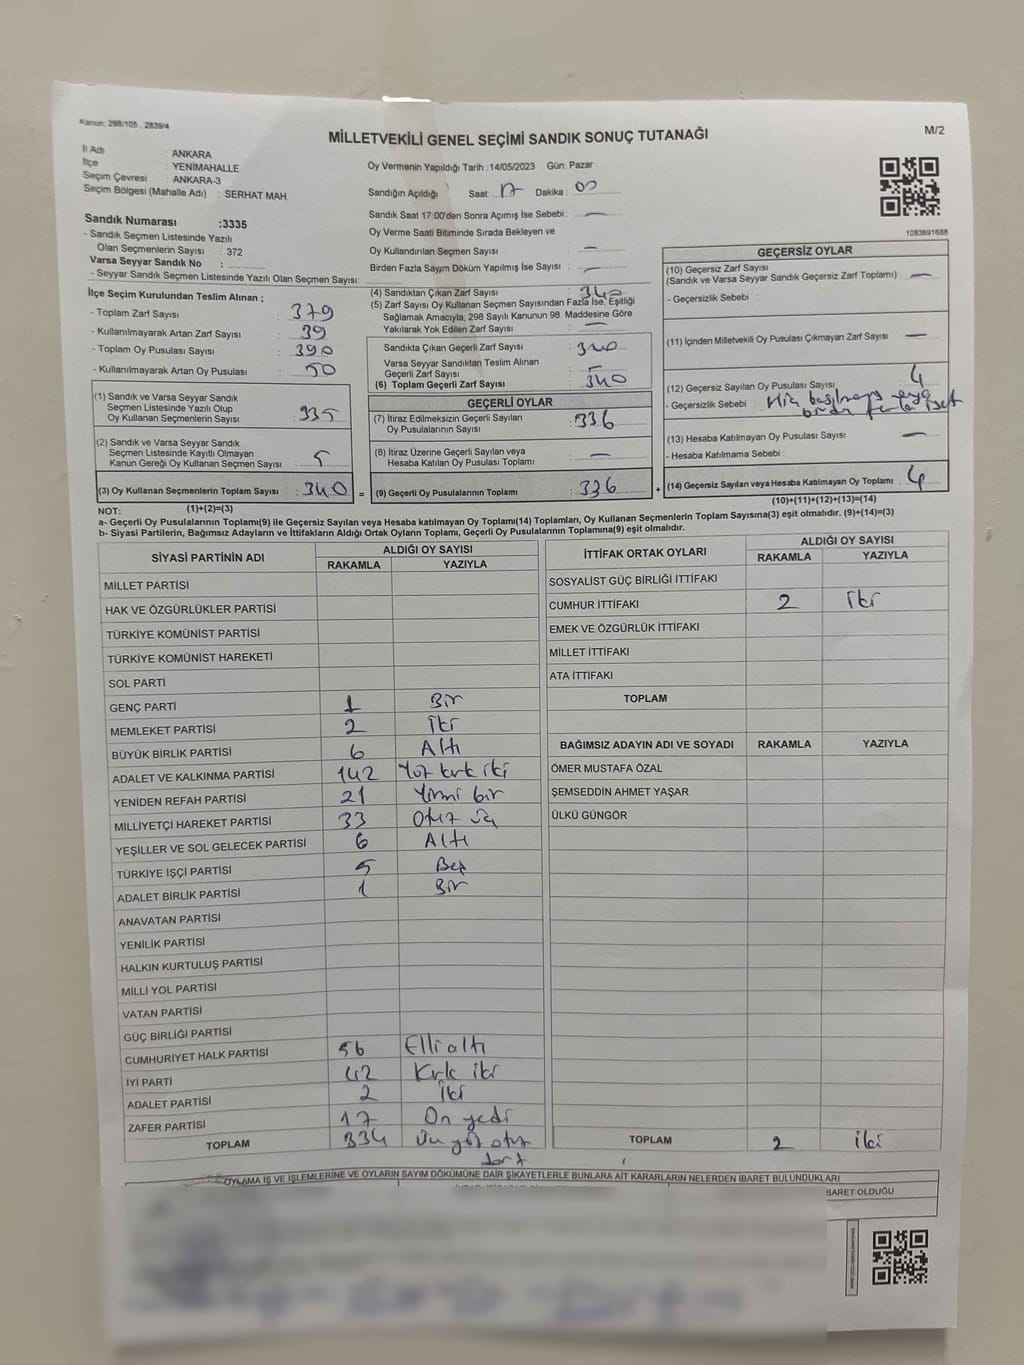 Kanun; 298/105 , 2839/4
MİLLETVEKİLİ GENEL SEÇİMİ SANDIK SONUÇ TUTANAĞI
M/2
İl Adı : ANKARA
İlçe : YENİMAHALLE
Seçim Çevresi : ANKARA-3
Seçim Bölgesi (Mahalle Adı) : SERHAT MAH
Sandık Numarası :3335
- Sandık Seçmen Listesinde Yazılı
Olan Seçmenlerin Sayısı : 372
Varsa Seyyar Sandık No :
- Seyyar Sandık Seçmen Listesinde Yazılı Olan Seçmen Sayısı:
İlçe Seçim Kurulundan Teslim Alınan ;
- Toplam Zarf Sayısı : 379
- Kullanılmayarak Artan Zarf Sayısı : 39
- Toplam Oy Pusulası Sayısı : 390
- Kullanılmayarak Artan Oy Pusulası : 50
(1) Sandık ve Varsa Seyyar Sandık
Seçmen Listesinde Yazılı Olup
Oy Kullanan Seçmenlerin Sayısı : 335
(2) Sandık ve Varsa Seyyar Sandık
Seçmen Listesinde Kayıtlı Olmayan
Kanun Gereği Oy Kullanan Seçmen Sayısı : 5
(3) Oy Kullanan Seçmenlerin Toplam Sayısı : 340
Oy Vermenin Yapıldığı Tarih : 14/05/2023 Gün: Pazar
Sandığın Açıldığı Saat : 17 Dakika : 00
Sandık Saat 17:00'den Sonra Açımış İse Sebebi : —
Oy Verme Saati Bitiminde Sırada Bekleyen ve
Oy Kullandırılan Seçmen Sayısı : —
Birden Fazla Sayım Döküm Yapılmış İse Sayısı : —
(4) Sandıktan Çıkan Zarf Sayısı : 340
(5) Zarf Sayısı Oy Kullanan Seçmen Sayısından Fazla İse, Eşitliği
Sağlamak Amacıyla, 298 Sayılı Kanunun 98. Maddesine Göre
Yakılarak Yok Edilen Zarf Sayısı : —
Sandıkta Çıkan Geçerli Zarf Sayısı : 340
Varsa Seyyar Sandıktan Teslim Alınan
Geçerli Zarf Sayısı :
(6) Toplam Geçerli Zarf Sayısı : 340
GEÇERLİ OYLAR
(7) İtiraz Edilmeksizin Geçerli Sayılan
Oy Pusulalarının Sayısı : 336
(8) İtiraz Üzerine Geçerli Sayılan veya
Hesaba Katılan Oy Pusulası Toplamı : —
= (9) Geçerli Oy Pusulalarının Toplamı : 336
1083691688
GEÇERSİZ OYLAR
(10) Geçersiz Zarf Sayısı
(Sandık ve Varsa Seyyar Sandık Geçersiz Zarf Toplamı) : —
- Geçersizlik Sebebi :
(11) İçinden Milletvekili Oy Pusulası Çıkmayan Zarf Sayısı : —
(12) Geçersiz Sayılan Oy Pusulası Sayısı : 4
- Geçersizlik Sebebi : veya
(13) Hesaba Katılmayan Oy Pusulası Sayısı : —
- Hesaba Katılmama Sebebi :
+ (14) Geçersiz Sayılan veya Hesaba Katılmayan Oy Toplamı : 4
NOT: (1)+(2)=(3)
(10)+(11)+(12)+(13)=(14)
a- Geçerli Oy Pusulalarının Toplamı(9) ile Geçersiz Sayılan veya Hesaba katılmayan Oy Toplamı(14) Toplamları, Oy Kullanan Seçmenlerin Toplam Sayısına(3) eşit olmalıdır. (9)+(14)=(3)
b- Siyasi Partilerin, Bağımsız Adayların ve İttifakların Aldığı Ortak Oyların Toplamı, Geçerli Oy Pusulalarının Toplamına(9) eşit olmalıdır.
SİYASİ PARTİNİN ADI ALDIĞI OY SAYISI
RAKAMLA YAZIYLA
MİLLET PARTİSİ
HAK VE ÖZGÜRLÜKLER PARTİSİ
TÜRKİYE KOMÜNİST PARTİSİ
TÜRKİYE KOMÜNİST HAREKETİ
SOL PARTİ
GENÇ PARTİ 1 Bir
MEMLEKET PARTİSİ 2 İki
BÜYÜK BİRLİK PARTİSİ 6 Altı
ADALET VE KALKINMA PARTİSİ 142 Yüz kırk iki
YENİDEN REFAH PARTİSİ 21 Yirmi bir
MİLLİYETÇİ HAREKET PARTİSİ 33 Otuz üç
YEŞİLLER VE SOL GELECEK PARTİSİ 6 Altı
TÜRKİYE İŞÇİ PARTİSİ 5 Beş
ADALET BİRLİK PARTİSİ 1 Bir
ANAVATAN PARTİSİ
YENİLİK PARTİSİ
HALKIN KURTULUŞ PARTİSİ
MİLLİ YOL PARTİSİ
VATAN PARTİSİ
GÜÇ BİRLİĞİ PARTİSİ
CUMHURİYET HALK PARTİSİ 56 Elli altı
İYİ PARTİ 42 Kırk iki
ADALET PARTİSİ 2 İki
ZAFER PARTİSİ 17 On yedi
TOPLAM 334 Üç yüz otuz
dört
İTTİFAK ORTAK OYLARI ALDIĞI OY SAYISI
RAKAMLA YAZIYLA
SOSYALİST GÜÇ BİRLİĞİ İTTİFAKI
CUMHUR İTTİFAKI 2 İki
EMEK VE ÖZGÜRLÜK İTTİFAKI
MİLLET İTTİFAKI
ATA İTTİFAKI
TOPLAM
BAĞIMSIZ ADAYIN ADI VE SOYADI RAKAMLA YAZIYLA
ÖMER MUSTAFA ÖZAL
ŞEMSEDDİN AHMET YAŞAR
ÜLKÜ GÜNGÖR
TOPLAM 2 iki
OYLAMA İŞ VE İŞLEMLERİNE VE OYLARIN SAYIM DÖKÜMÜNE DAİR ŞİKAYETLERLE BUNLARA AİT KARARLARIN NELERDEN İBARET BULUNDUKLARI
BARET OLDUĞU